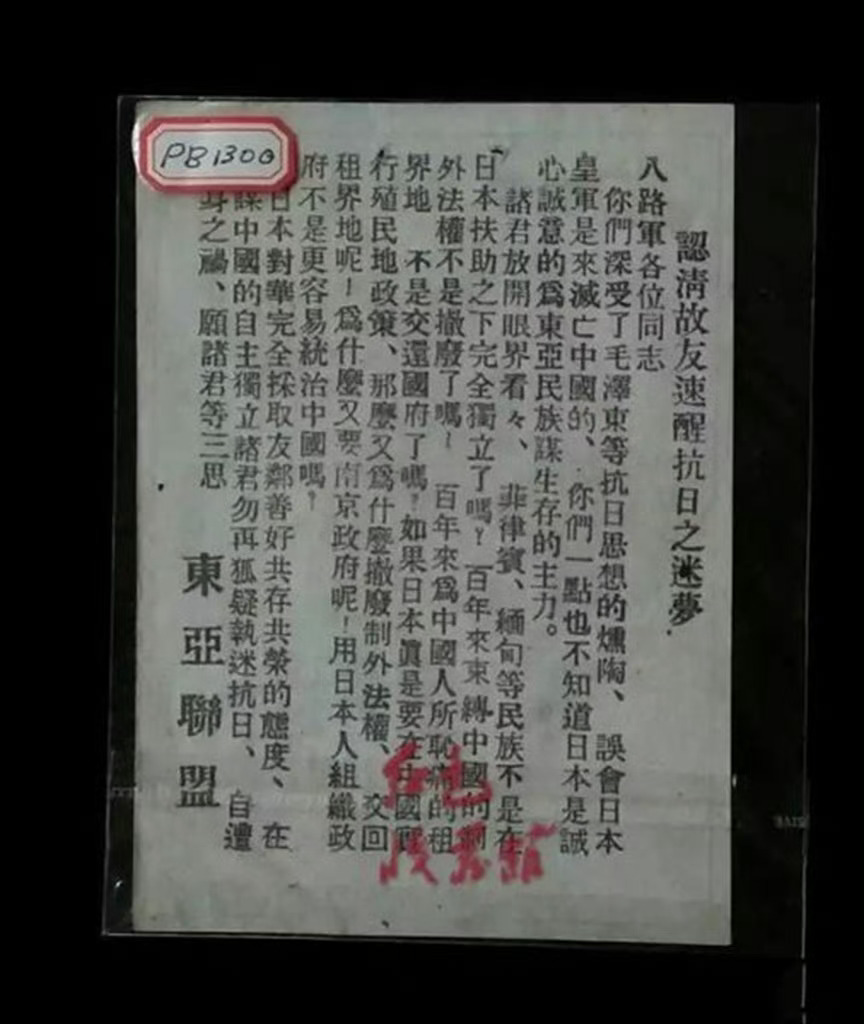 PB1300
認清故友速醒抗日之迷夢
八路軍各位同志
你們深受了毛澤東等抗日思想的燻陶、誤會日本
皇軍是來滅亡中國的、你們一點也不知道日本是誠
心誠意的爲東亞民族謀生存的主力。
諸君放開眼界看々、菲律賓、緬甸等民族不是在
日本扶助之下完全獨立了嗎?百年來束縛中國的制
外法權不是撤廢了嗎!百年來爲中國人所恥痛的租
界地 不是交還國府了嗎?如果日本眞是要在中國實
行殖民地政策、那麼又爲什麼撤廢制外法權、交回
租界地呢!爲什麼又要南京政府呢!用日本人組織政
府不是更容易統治中國嗎?
日本對華完全採取友鄰善好共存共榮的態度、在
謀中國的自主獨立諸君勿再狐疑執迷抗日、自遭
身之禍、願諸君等三思
東亞聯盟
红色
收藏館